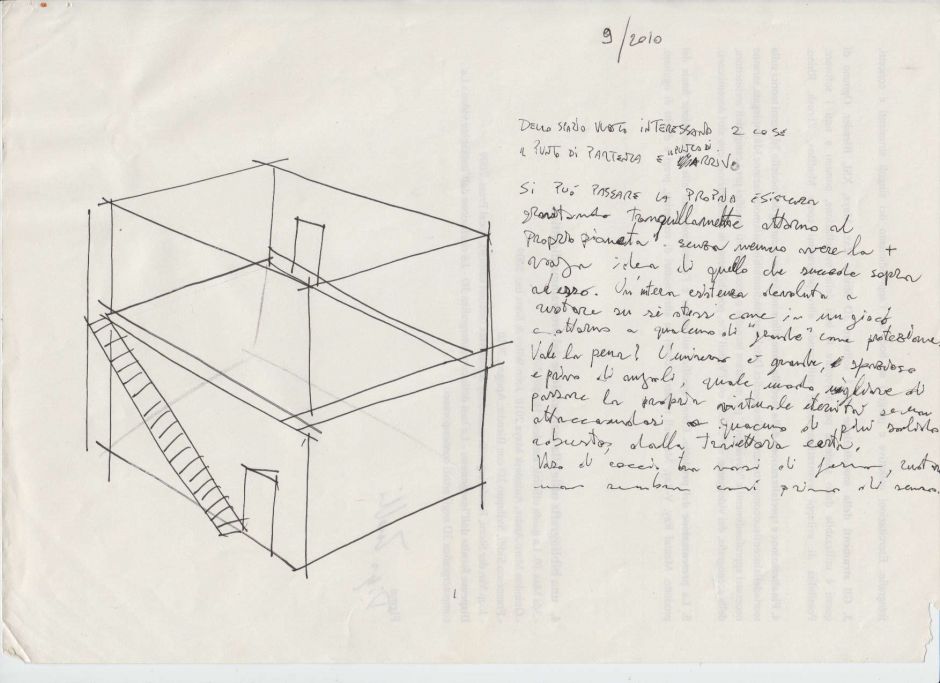 9/2010
DELLO SPAZIO VUOTO INTERESSANO 2 COSE
IL PUNTO DI PARTENZA E IL PUNTO DI ARRIVO
SI PUÒ PASSARE LA PROPRIA ESISTENZA
gravitando tranquillamente attorno al
proprio pianeta senza nemmeno avere la +
vaga idea di quello che succede sopra
ad esso. Un'intera esistenza devoluta a
ruotare su se stessi come in un gioco
e attorno a qualcuno di "grande" come protezione.
Vale la pena? L'universo è grande, spazioso
e privo di angoli, quale modo migliore di
passare la propria virtuale eternità se non
attaccandosi a qualcuno di più solido
robusto, dalla traiettoria certa.
Vaso di coccio tra vasi di ferro,
non sembra così privo di senso